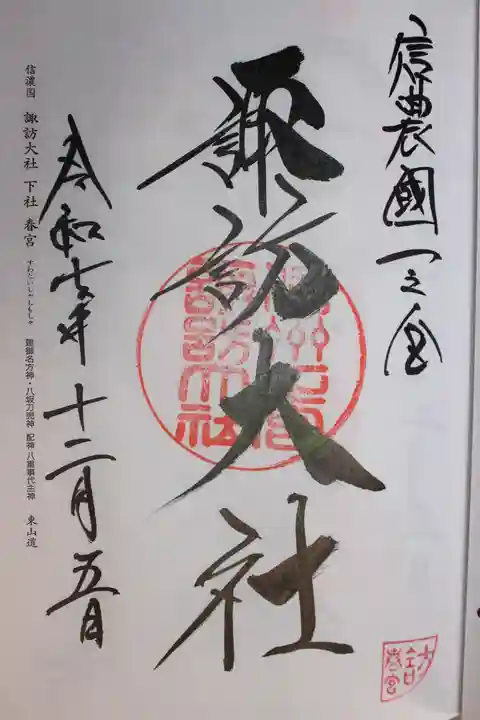 信濃國一之宮
諏訪大社
令和七年十二月五日
信濃国 諏訪大社 下社 春宮 すわたいしゃしもしゃ 建御名方神・八坂刀売神 配神 八重事代主神 東山道
春宮